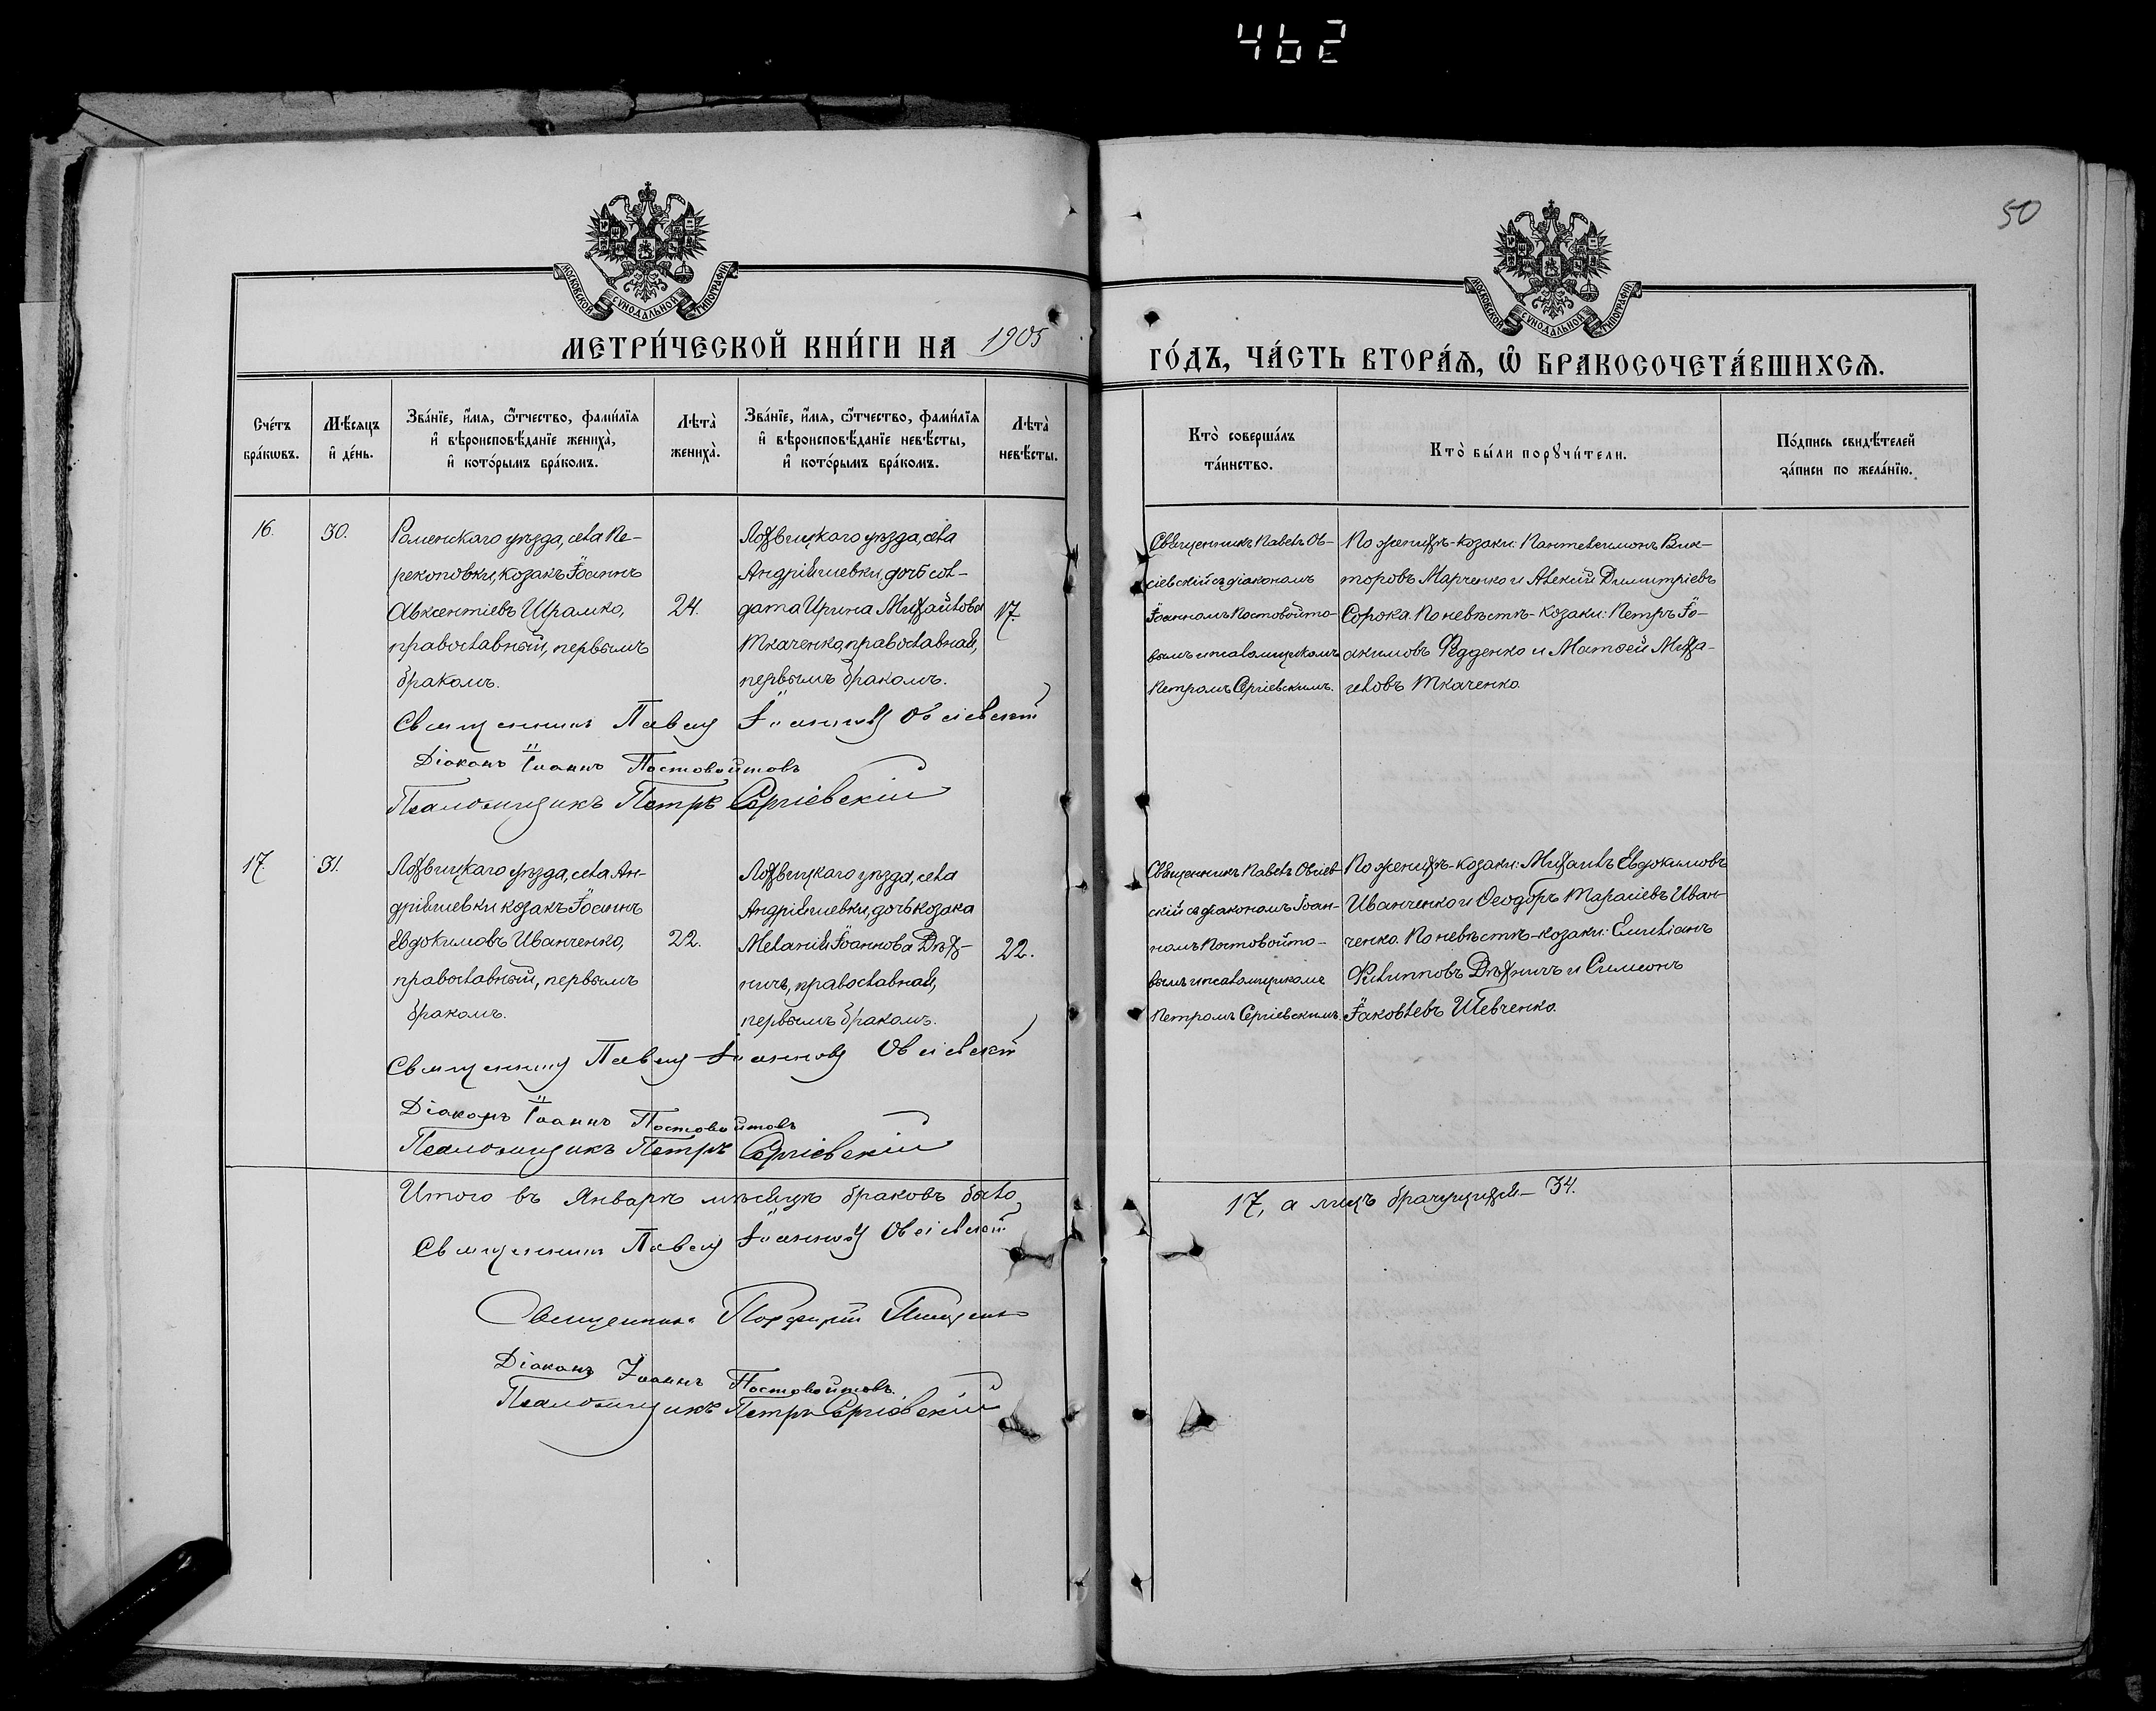 462
50
МОСКОВСКОЙ СУНОДАЛЬНОЙ ТИПОГРАФІИ
МОСКОВСКОЙ СУНОДАЛЬНОЙ ТИПОГРАФІИ
МЕТРИ́ЧЕСКОЙ КНИ́ГИ НА 1905
ГО́ДЪ, ЧА́СТЬ ВТОРА́Ѧ, Ѽ БРАКОСОЧЕТА́ВШИХСѦ.
Сче́тъ
бра́кѡвъ.
Мѣ́сяцъ
и҆ де́нь.
Зва́нїе, и҆́мя, ѻ҆́тчество, фамилїя
и҆ вѣроисповѣ́данїе жениха̀,
и҆ кото́рымъ бра́комъ.
Лѣта̀
жениха̀.
Зва́нїе, и҆́мя, ѻ҆́тчество, фамилїя
и҆ вѣроисповѣ́данїе невѣ́сты,
и҆ кото́рымъ бра́комъ.
Лѣта̀
невѣ́сты.
Кто̀ соверша́лъ
та́инство.
Кто̀ бы́ли порꙋчи́тели.
По́дпись свидѣ́телей
за́писи по жела́нїю.
16.
30.
Роменскаго уѣзда, села Пе-
рекоповки, козакъ Іоаннъ
Авксентіевъ Шрамко,
православный, первымъ
бракомъ.
24.
Лохвицкаго уѣзда, села
Андріяшевки, дочь сол-
дата Ирина Михайлова
Ткаченко, православная,
первымъ бракомъ.
17.
Священникъ Павелъ Ов-
сіевскій съ діакономъ
Іоанномъ Постовойто-
вымъ и псаломщикомъ
Петромъ Сергіевскимъ.
По женихѣ - козаки: Пантелеимонъ Вик-
торовъ Марченко и Алексій Димитріевъ
Сорока. По невѣстѣ - козаки: Петръ Іо-
акимовъ Федденко и Матѳей Миха-
иловъ Ткаченко.
Священникъ Павелъ Іоанновъ Овсіевскій
Діаконъ Іоаннъ Постовойтовъ
Псаломщикъ Петръ Сергіевскій
17.
31.
Лохвицкаго уѣзда, села Ан-
дріяшевки козакъ Іоаннъ
Евдокимовъ Иванченко,
православный, первымъ
бракомъ.
22.
Лохвицкаго уѣзда, села
Андріяшевки, дочь козака
Меланія Іоаннова Дѣх-
ничъ, православная,
первымъ бракомъ.
22.
Священникъ Павелъ Овсіев-
скій съ діакономъ Іоан-
номъ Постовойто-
вымъ и псаломщикомъ
Петромъ Сергіевскимъ.
По женихѣ - козаки: Михаилъ Евдокимовъ
Иванченко и Ѳеодоръ Тарасіевъ Иван-
ченко. По невѣстѣ - козаки: Емиліанъ
Филипповъ Дѣхничъ и Симеонъ
Іаковлевъ Шевченко.
Священникъ Павелъ Іоанновъ Овсіевскій
Діаконъ Іоаннъ Постовойтовъ
Псаломщикъ Петръ Сергіевскій
Итого въ Январѣ мѣсяцѣ браковъ было
17, а лицъ брачущихся - 34.
Священникъ Павелъ Іоанновъ Овсіевскій
Священникъ Порфирій
Діаконъ Іоаннъ Постовойтовъ.
Псаломщикъ Петръ Сергіевскій